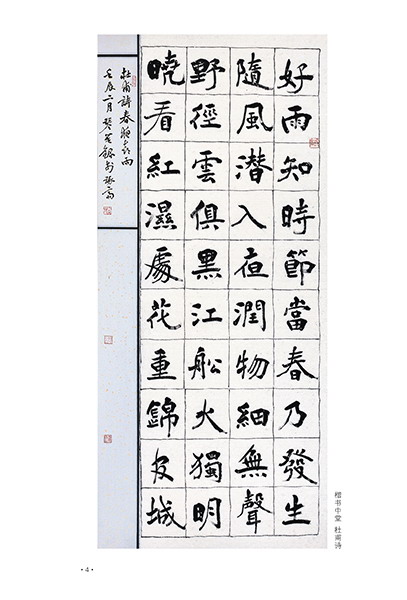 好雨知時節當春乃發生
隨風潜入夜潤物細無聲
野徑雲俱黑江舩火獨明
曉看紅濕處花重錦官城
杜甫詩春夜喜雨
壬辰二月
楷书中堂 杜甫诗
· 4 ·